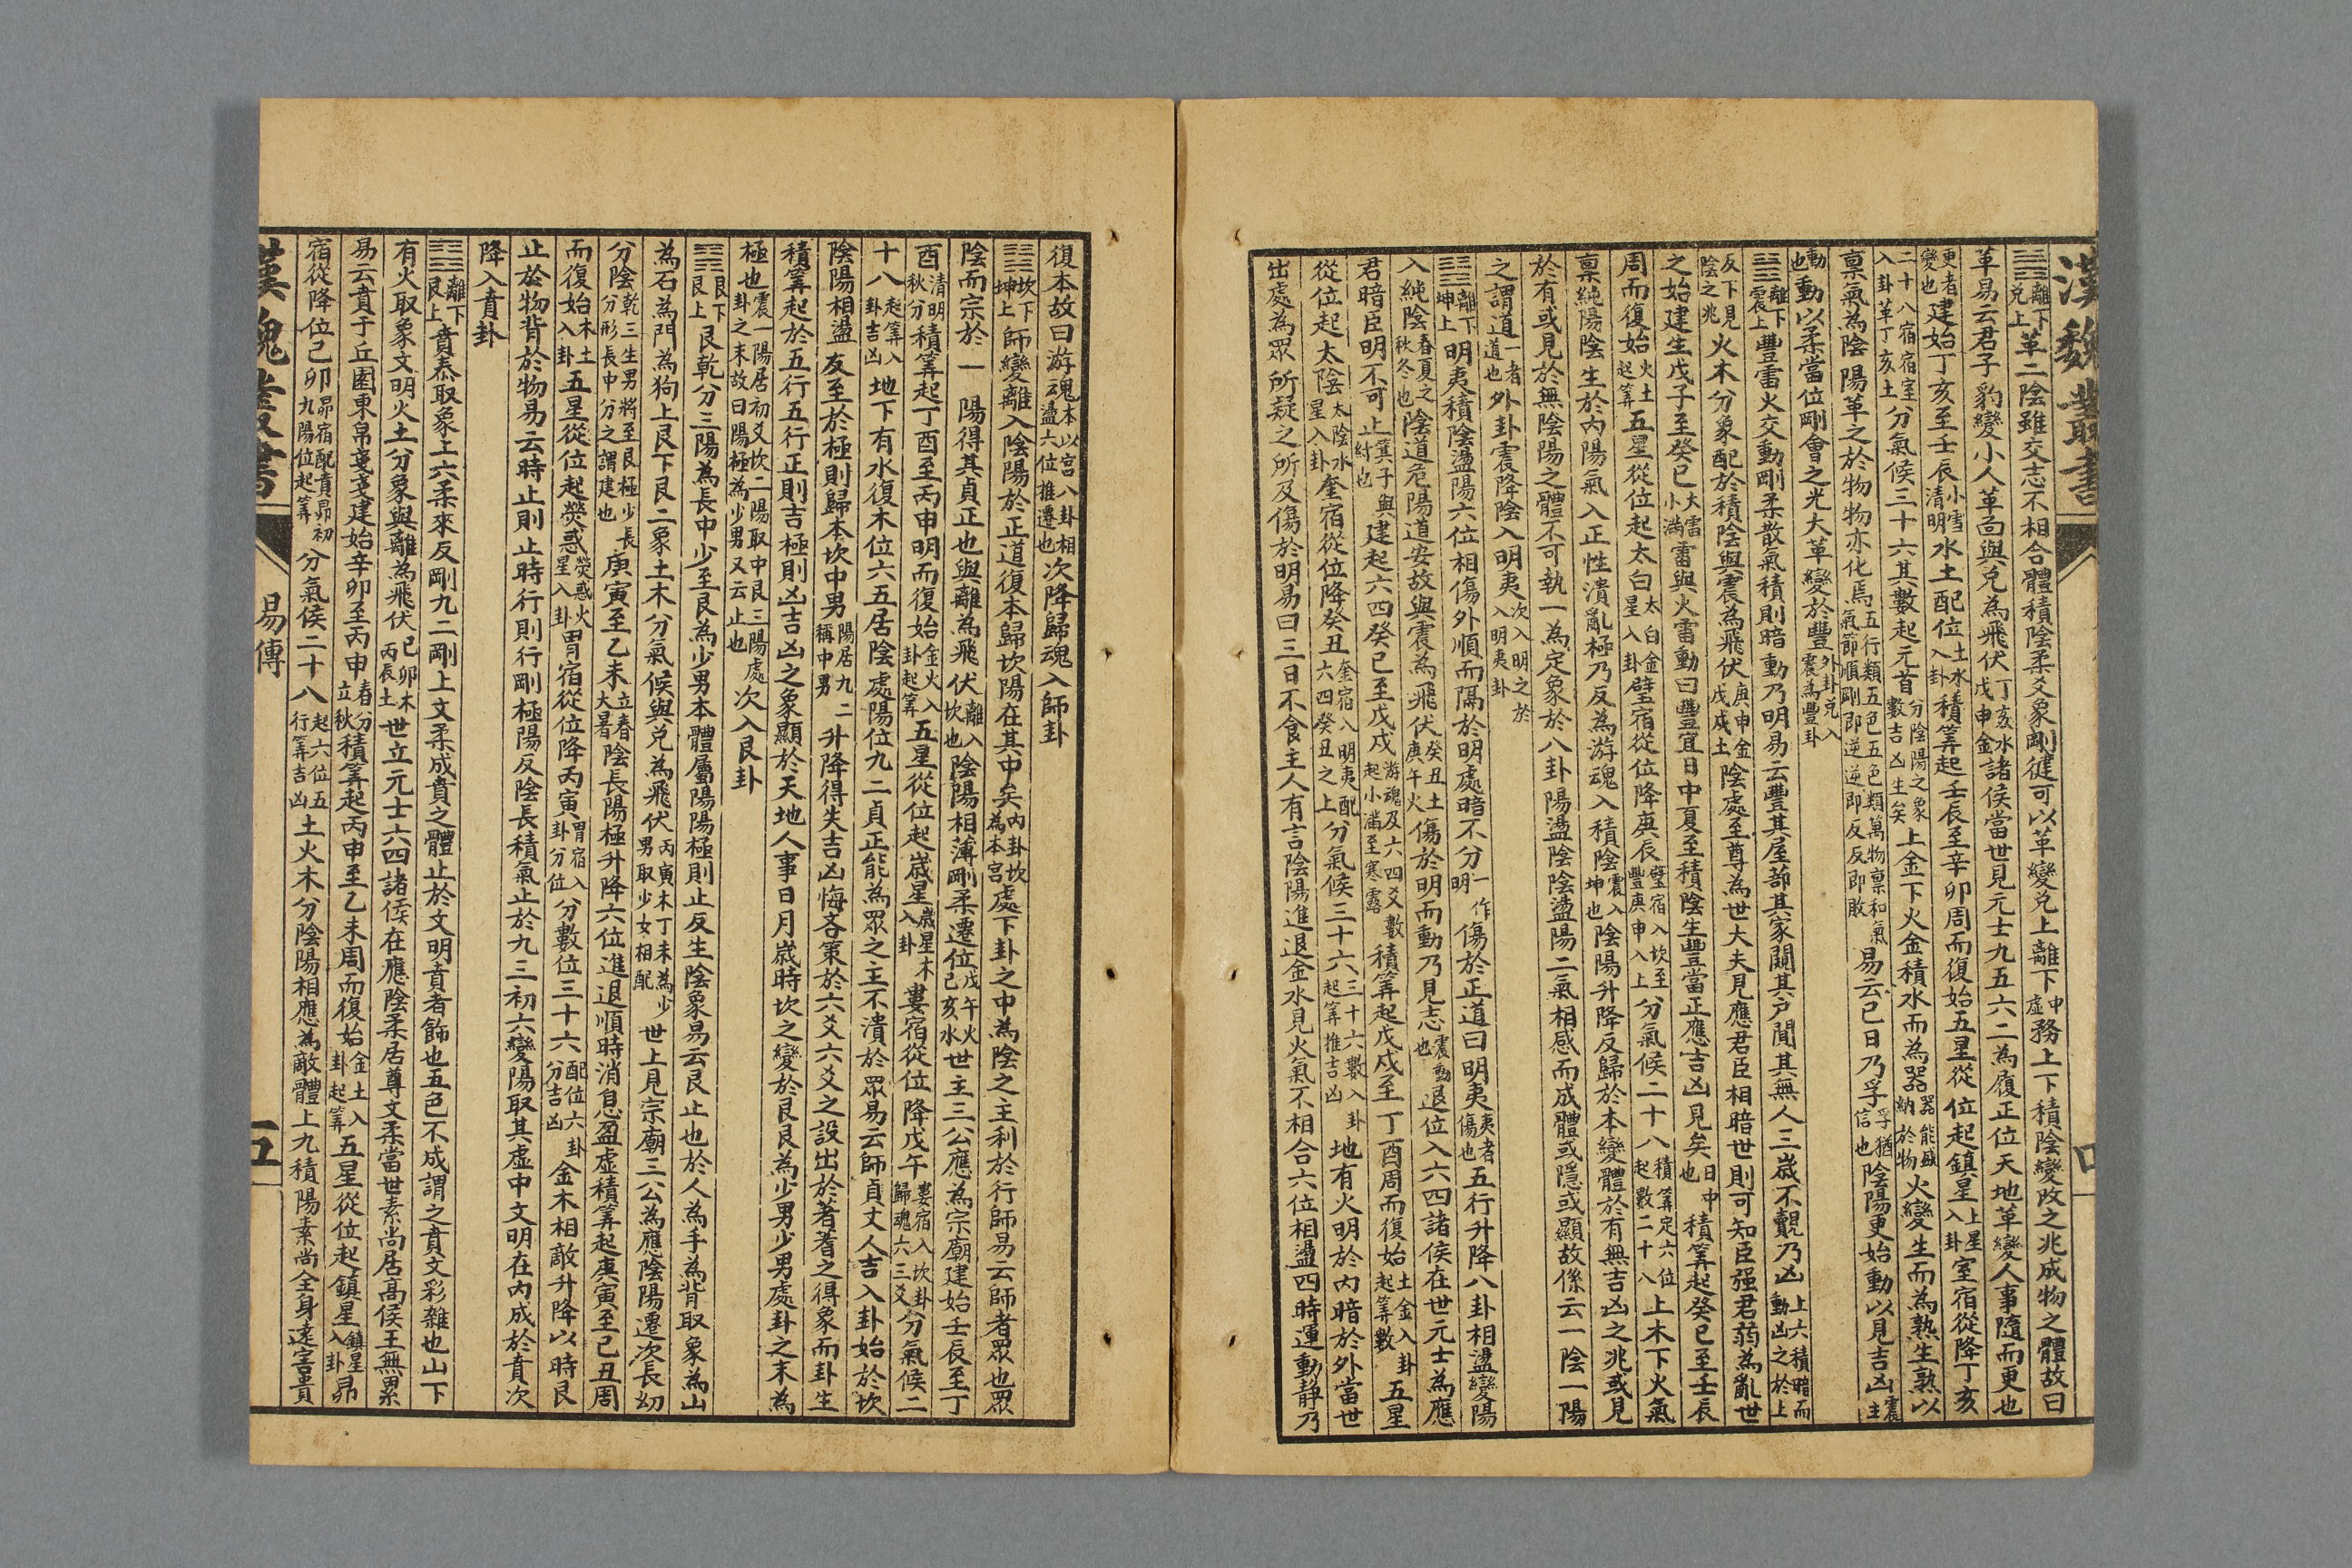 漢魏叢書
四
䷰離下兌上革二陰雖交志不相合體積陰柔爻象剛健可以革變兌上離下中虛務上下積陰變改之兆成物之體故曰
革易云君子豹變小人革面與兌為飛伏丁亥水戊申金諸侯當世見元士九五六二為履正位天地革變人事隨而更也
更者變也建始丁亥至壬辰小雪清明水土配位土水入卦積筭起壬辰至辛卯周而復始五星從位起鎮星上星入卦室宿從降丁亥
二十八宿宿室入卦革丁亥土分氣候三十六其數起元首分陰陽之象數吉凶生矣上金下火金積水而為器器能盛納於物火變生而為熟生熟以
禀氣為陰陽革之於物物亦化焉五行類五色五色類萬物禀和氣氣節順剛即逆逆即反反即敗易云已日乃孚孚猶信也陰陽更始動以見吉凶震主
動也動以柔當位剛會之光大革變於豐外卦兌入震為豐卦
䷶離下震上豐雷火交動剛柔散氣積則暗動乃明易云豐其屋蔀其家闚其戶閴其無人三歲不覿乃凶上六積暗而動凶之於上
反下見陰之兆火木分象配於積陰與震為飛伏庚申金戊戌土陰處至尊為世大夫見應君臣相暗世則可知臣强君弱為亂世
之始建生戊子至癸巳大雪小滿雷與火雷動曰豐宜日中夏至積陰生豐當正應吉凶見矣日中也積筭起癸巳至壬辰
周而復始火土起筭五星從位起太白太白金星入卦壁宿從位降庚辰壁宿入坎至豐庚申入上分氣候二十八積筭定六位起數二十八上木下火氣
禀純陽陰生於內陽氣入正性潰亂極乃反為游魂入積陰震入坤也陰陽升降反歸於本變體於有無吉凶之兆或見
於有或見於無陰陽之體不可執一為定象於八卦陽盪陰陰盪陽二氣相感而成體或隱或顯故係云一陰一陽
之謂道一者道也外卦震降陰入明夷次入明之於入明夷卦
䷣離下坤上明夷積陰盪陽六位相傷外順而隔於明處暗不分一作明傷於正道曰明夷夷者傷也五行升降八卦相盪變陽
入純陰春夏之秋冬也陰道危陽道安故與震為飛伏癸丑土庚午火傷於明而動乃見志震動也退位入六四諸侯在世元士為應
君暗臣明不可止箕子與紂也建起六四癸巳至戊戌游魂及六四爻數起小滿至寒露積筭起戊戌至丁酉周而復始土金入卦起筭數五星
從位起太陰太陰水星入卦奎宿從位降癸丑奎宿入明夷配六四癸丑之上分氣候三十六三十六數入卦起筭推吉凶地有火明於內暗於外當世
出處為眾所疑之所及傷於明易曰三日不食主人有言陰陽進退金水見火氣不相合六位相盪四時運動靜乃
復本故曰游魂本以宮八卦相盪六位推遷也次降歸魂入師卦
䷆坎下坤上師變離入陰陽於正道復本歸坎陽在其中矣內卦坎為本宮處下卦之中為陰之主利於行師易云師者眾也眾
陰而宗於一陽得其貞正也與離為飛伏離入坎也陰陽相薄剛柔遷位戊午火己亥水世主三公應為宗廟建始壬辰至丁
酉清明秋分積筭起丁酉至丙申明而復始金火入卦起筭五星從位起歲星歲星木入卦婁宿從位降戊午婁宿入坎卦歸魂六三爻分氣候二
十八起筭入卦吉凶地下有水復木位六五居陰處陽位九二貞正能為眾之主不潰於眾易云師貞丈人吉入卦始於坎
陰陽相盪反至於極則歸本坎中男陽居九二稱中男升降得失吉凶悔吝策於六爻六爻之設出於蓍蓍之得象而卦生
積筭起於五行五行正則吉極則凶吉凶之象顯於天地人事日月歲時坎之變於艮艮為少男少男處卦之末為
極也震一陽居初爻坎二陽取中艮三陽處卦之末故曰陽極為少男又云止也次入艮卦
䷳艮下艮上艮乾分三陽為長中少至艮為少男本體屬陽陽極則止反生陰象易云艮止也於人為手為背取象為山
為石為門為狗上艮下艮二象土木分氣候與兌為飛伏丙寅木丁未為少男取少女相配世上見宗廟三公為應陰陽遷次長幼
分陰乾三生男將至艮極少長分形長中分之謂建也庚寅至乙未立春大暑陰長陽極升降六位進退順時消息盈虛積筭起庚寅至己丑周
而復始木土入卦五星從位起熒惑熒惑火星入卦胃宿從位降丙寅胃宿入卦分位分數位三十六配位六卦分吉凶金木相敵升降以時艮
止於物背於物易云時止則止時行則行剛極陽反陰長積氣止於九三初六變陽取其虛中文明在內成於賁次
降入賁卦
䷕離下艮上賁泰取象上六柔來反剛九二剛上文柔成賁之體止於文明賁者飾也五色不成謂之賁文彩雜也山下
有火取象文明火土分象與離為飛伏己卯木丙辰土世立元士六四諸侯在應陰柔居尊文柔當世素尚居高侯王無累
易云賁于丘園束帛戔戔建始辛卯至丙申春分立秋積筭起丙申至乙未周而復始金土入卦起筭五星從位起鎮星鎮星入卦昴
宿從降位己卯昴宿配賁昴初九陽位起筭分氣候二十八起六位五行筭吉凶土火木分陰陽相應為敵體上九積陽素尚全身遠害貴
漢魏叢書
易傳
五